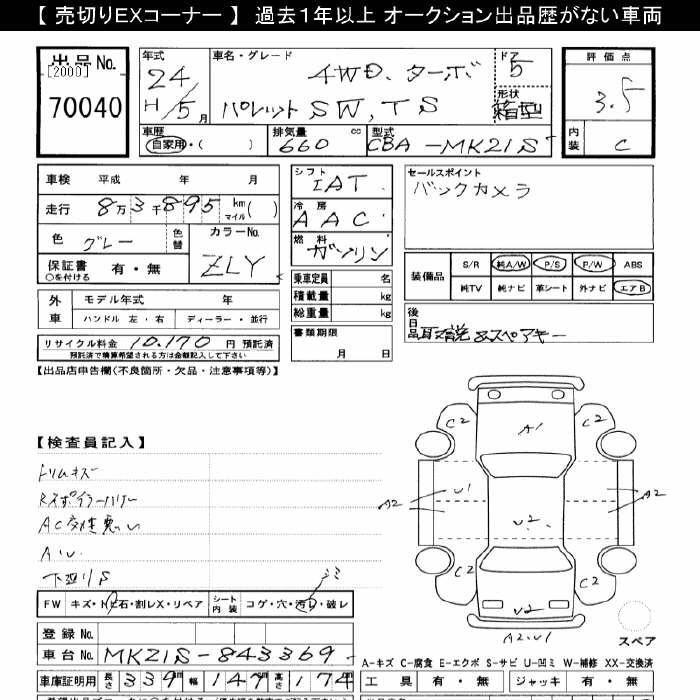 【 売切りEXコーナー 】 過去1年以上 オークション出品歴がない車両
出品No.
[2000]
70040
年式
24/
H/5月
車名・グレード
4WD、ターボ
パレットSW,TS
ドア
5
形状
箱型
車歴
自家用・( )
排気量 cc
660
型式
CBA-MK21S
評価点
3.5
内装
C
車検 平成 年 月
走行 8万3千895 km マイル( )
色 グレー
色替
カラーNo.
ZLY
保証書 有・無
○を付ける
シフト
IAT
冷房
AAC
燃料
ガソリン
乗車定員 名
積載量 kg
総重量 kg
書類期限
月 日
セールスポイント
バックカメラ
装備品
S/R 純A/W P/S P/W ABS
純TV 純ナビ 革シート 外ナビ エアB
外車
モデル年式 年
ハンドル 左・右 ディーラー・並行
リサイクル料金 10,170 円 預託済
預託済で精算希望される方は金額記入して下さい
後日品 取説&スペアキー
【出品店申告欄(不良箇所・欠品・注意事項等)】
【検査員記入】
トリムキズ
Rスポイラー
AC
A、U
下廻りS
C2 C2
A1
A2 U1 A2
U2
C2 C2
U2
A2、U1
スペア
FW キズ・飛石・割レX・リペア シート内装 コゲ・穴・汚レ・破レ
シミ
登録No.
車台No. MK21S-843369
車庫証明用 長さ 339cm 幅 147cm 高さ 174
A-キズ C-腐食 E-エクボ S-サビ U-凹ミ W-補修 XX-交換済
工具 有・無 ジャッキ 有・無